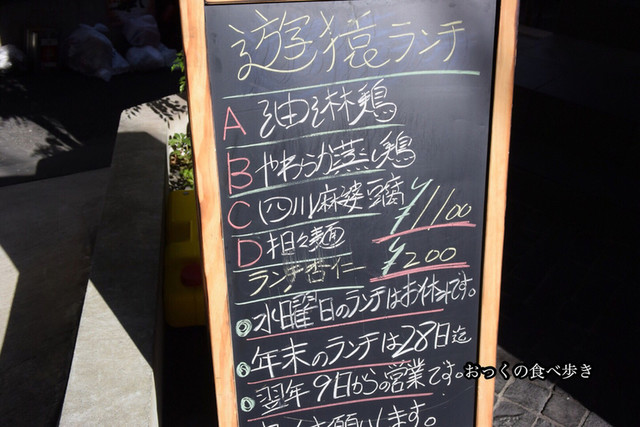 遊猿ランチ
A 油淋鶏
B やわらか蒸し鶏
C 四川麻婆豆腐
¥1100
D 担々麺
ランチ杏仁 ¥200
◎水曜日のランチはお休みです。
◎年末のランチは28日迄
◎翌年9日からの営業です。
お願いします。
おっくの食べ歩き